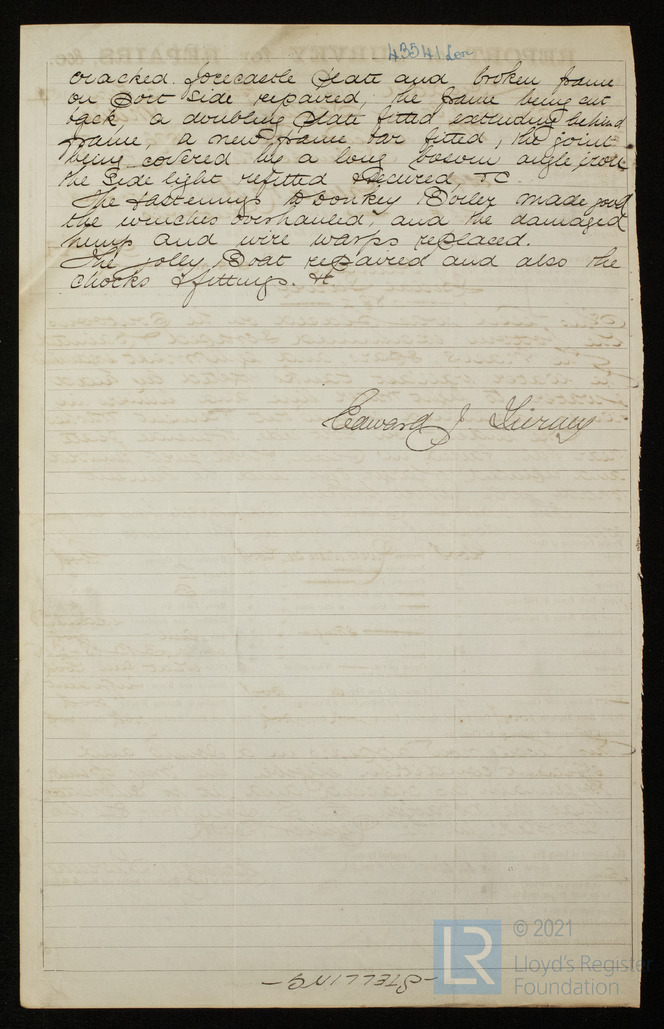 43541 Lon
cracked. forecastle plate and broken frame
on Port side repaired, the frame being cut
back, a doubling plate fitted extending behind
frame, a new frame bar fitted, the joint
being covered by a long bosom angle
the side light refitted & secured, &c.
The fastenings to Donkey Boiler made good
the winches overhauled, and the damaged
hemp and wire warps replaced.
The jolly Boat repaired and also the
chocks & fittings. &c.
Edward J. Tierney
-STELLING-
LR
© 2021
Lloyd's Register
Foundation